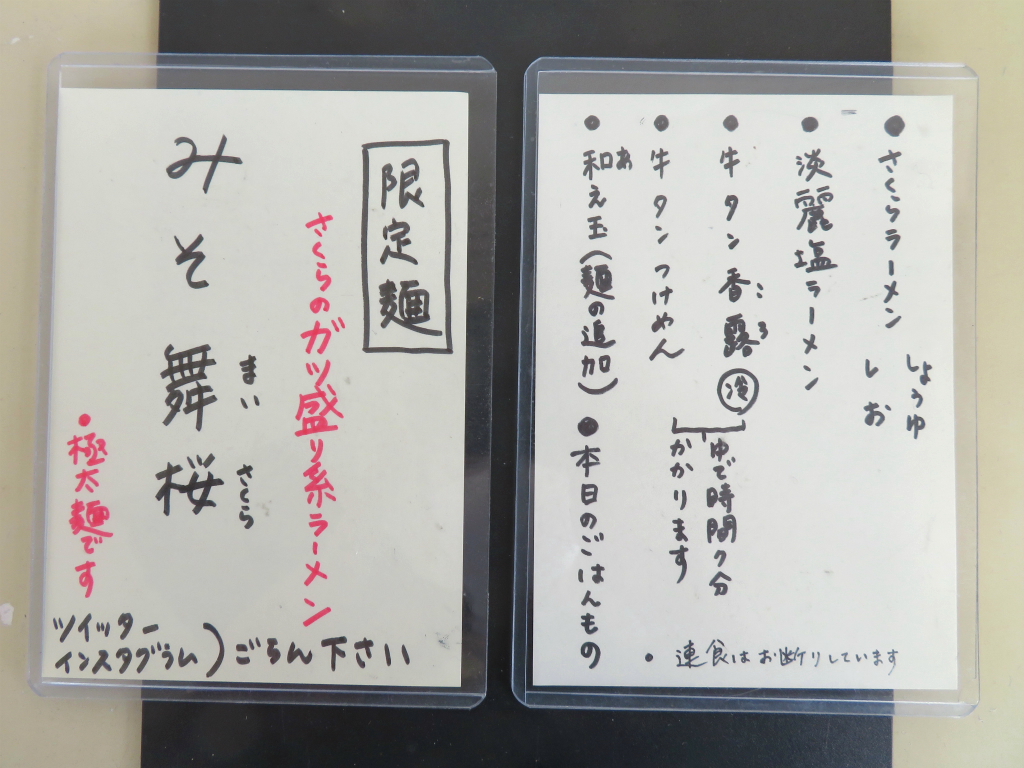 限定麺
さくらのガツ盛り系ラーメン
みそ舞桜
まい さくら
●極太麺です
ツイッター
インスタグラム)ごらん下さい
●さくらラーメン
しょうゆ
しお
●淡麗塩ラーメン
●牛タン香露 冷
こ ろ
●牛タンつけめん
ゆで時間7分
かかります
●和え玉(麺の追加)
あ
●本日のごはんもの
●連食はお断りしています